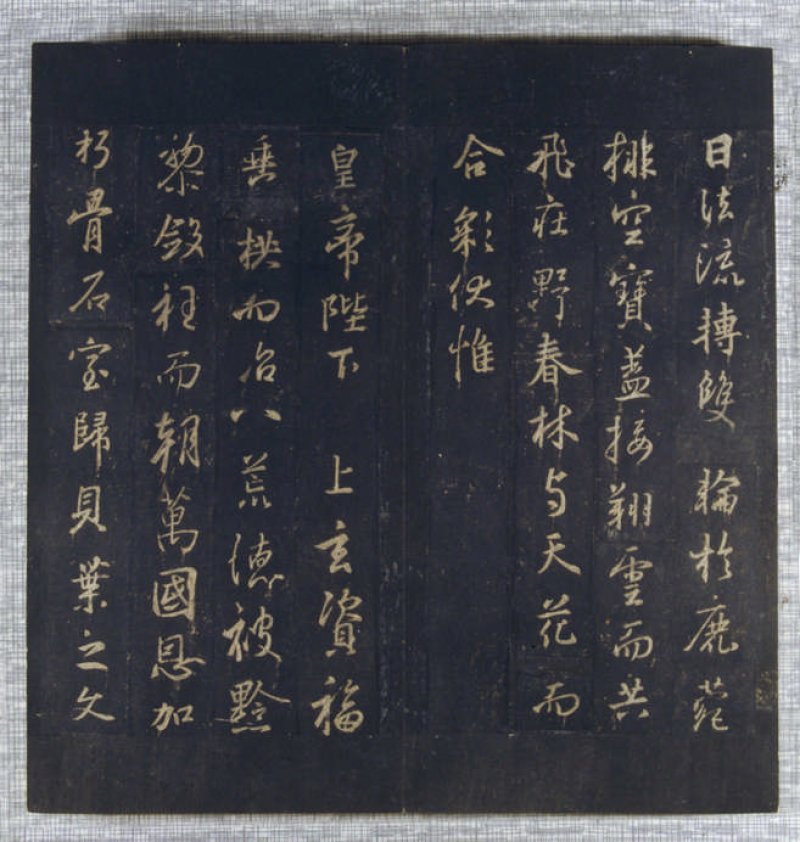 日法流轉雙輪於鹿菀
排空寶蓋接翔雲而共
飛莊野春林与天花而
合彩伏惟
皇帝陛下上玄資福
垂拱而治八荒德被黔
黎斂衽而朝萬國恩加
朽骨石室歸貝葉之文